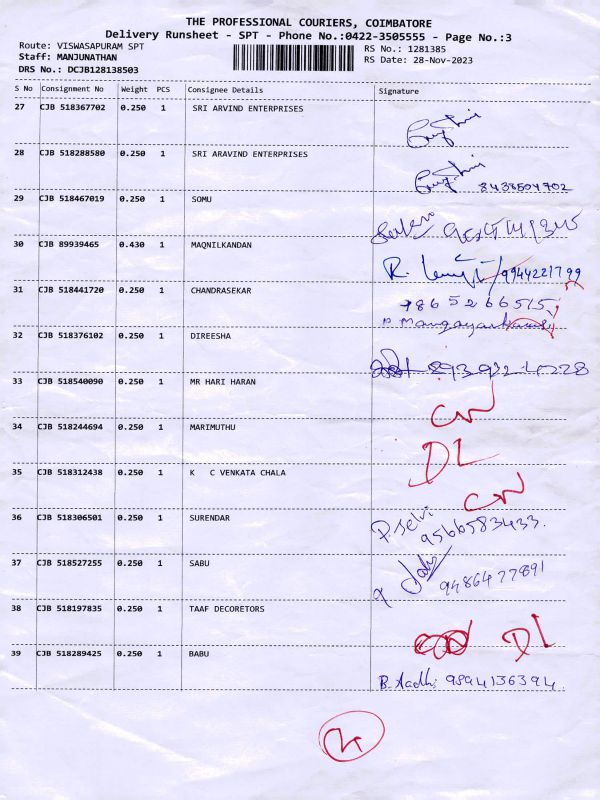 THE PROFESSIONAL COURIERS, COIMBATORE
Delivery Runsheet - SPT - Phone No.:0422-3505555 - Page No.:3
Route: VISWASAPURAM SPT RS No.: 1281385
Staff: MANJUNATHAN RS Date: 28-Nov-2023
DRS No.: DCJB128138503
S No Consignment No Weight PCS Consignee Details Signature
27 CJB 518367702 0.250 1 SRI ARVIND ENTERPRISES
28 CJB 518288580 0.250 1 SRI ARAVIND ENTERPRISES
8438504702
29 CJB 518467019 0.250 1 SOMU
30 CJB 89939465 0.430 1 MAQNILKANDAN
R. 9944221799
31 CJB 518441720 0.250 1 CHANDRASEKAR
7865266515
32 CJB 518376102 0.250 1 DIREESHA
33 CJB 518540090 0.250 1 MR HARI HARAN
CN
34 CJB 518244694 0.250 1 MARIMUTHU
DL
35 CJB 518312438 0.250 1 K C VENKATA CHALA
CN
36 CJB 518306501 0.250 1 SURENDAR
P. Selvi
9566583433.
37 CJB 518527255 0.250 1 SABU
9486477891
38 CJB 518197835 0.250 1 TAAF DECORETORS
DL
39 CJB 518289425 0.250 1 BABU
B. Aadhi 9894136394.